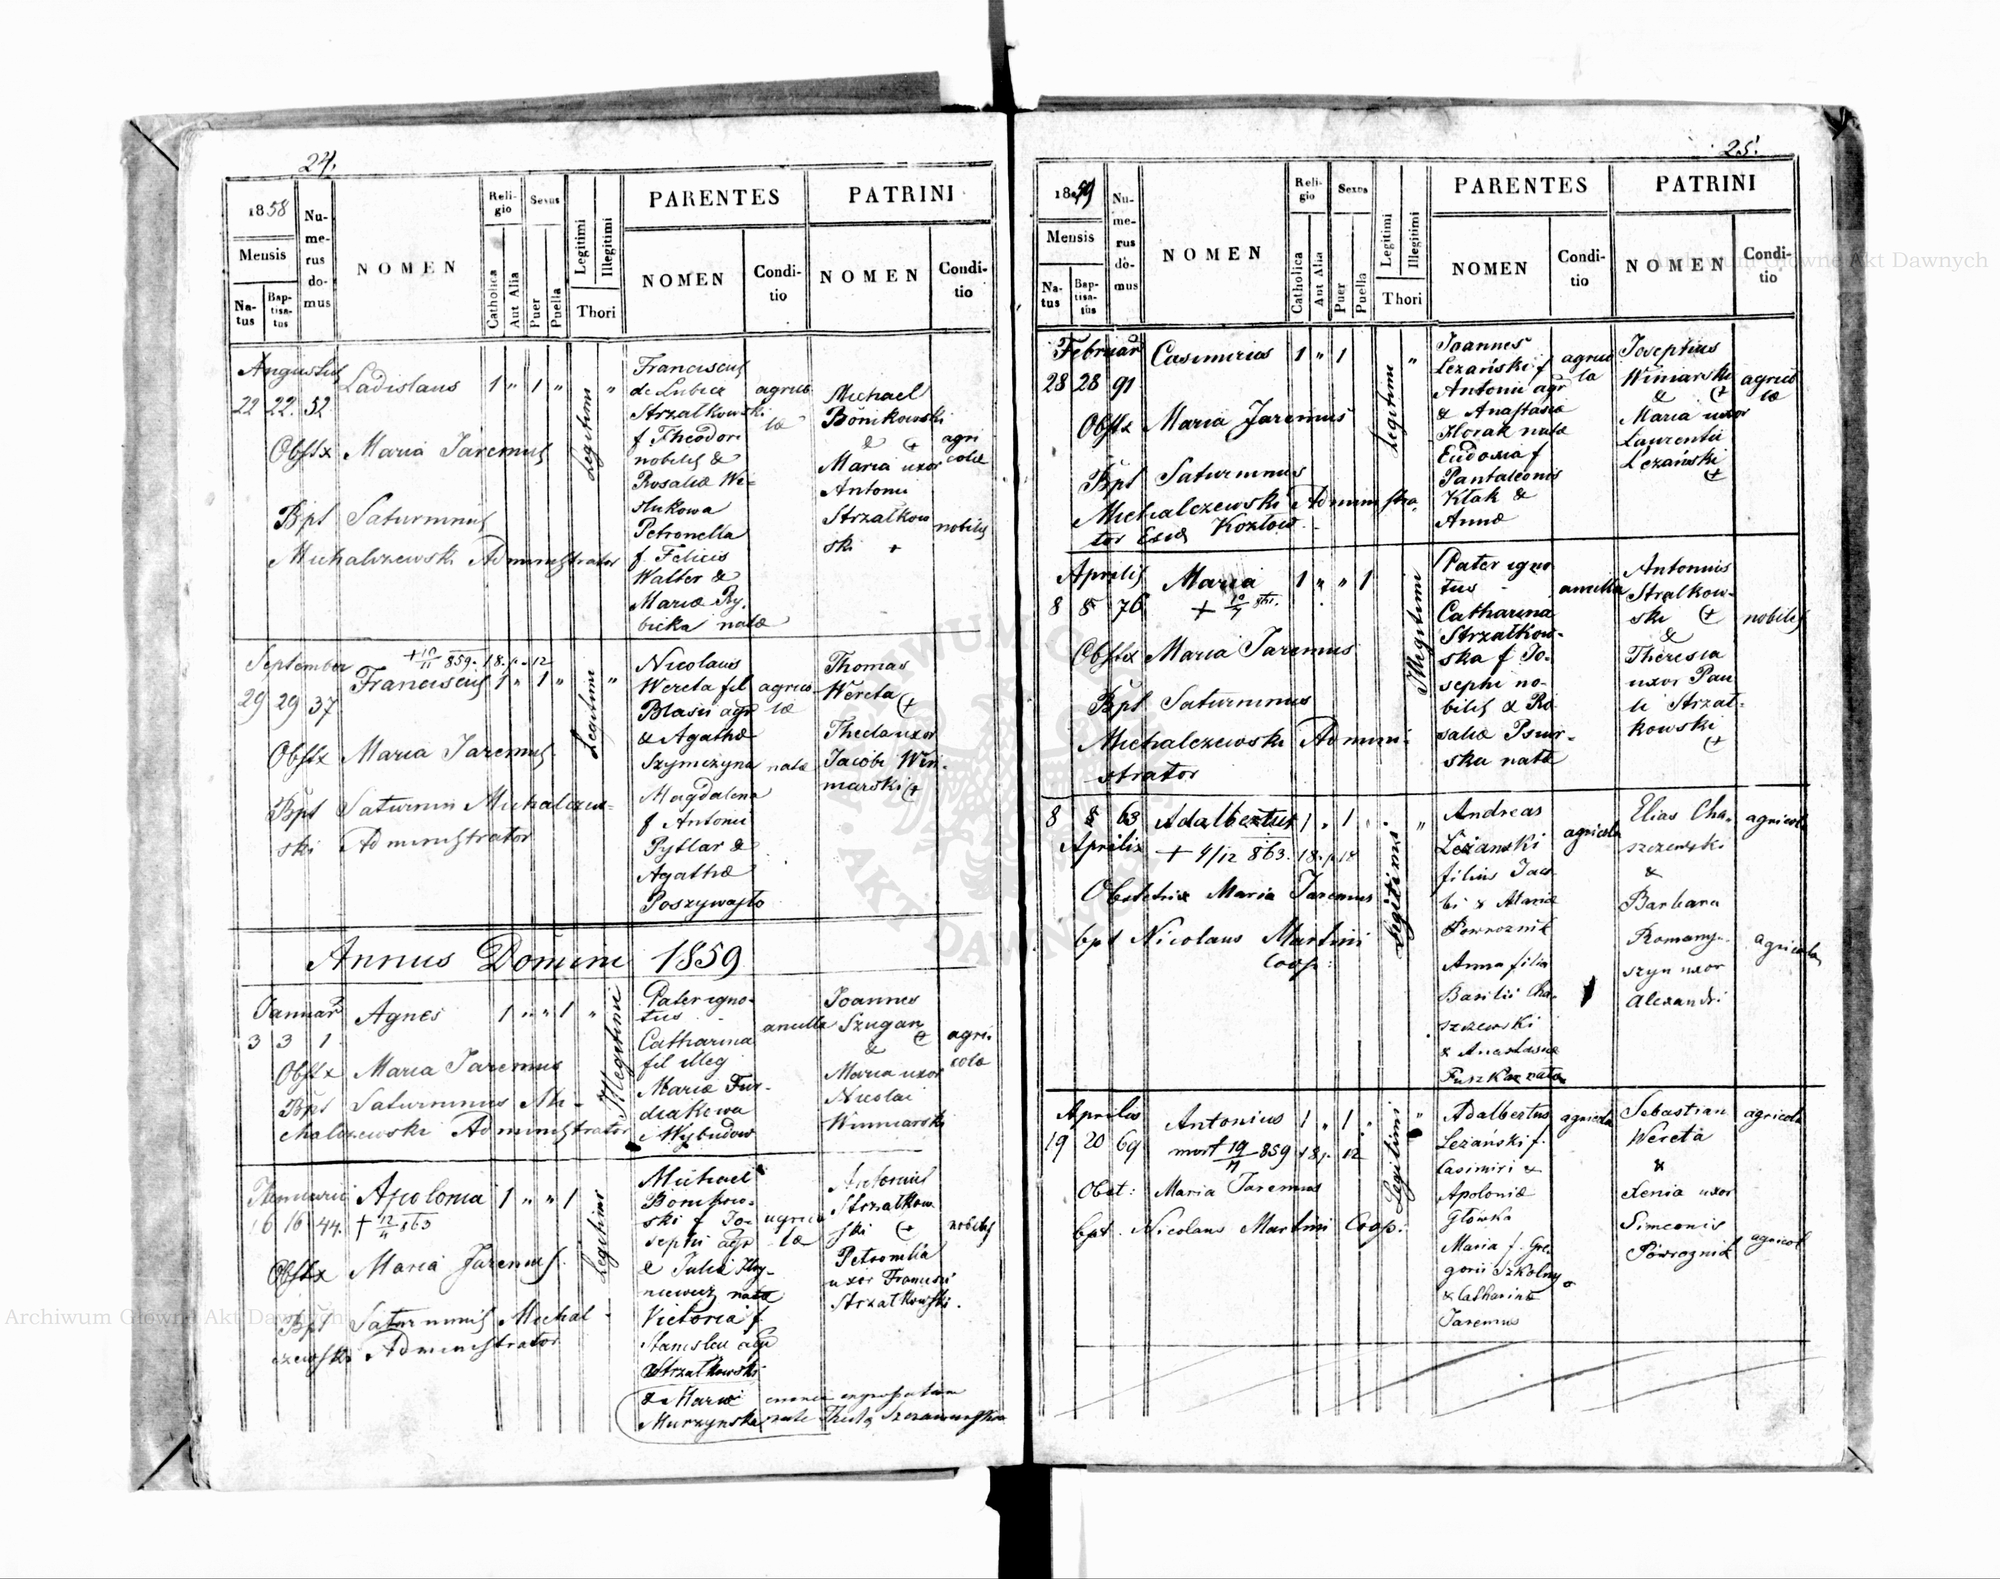 24.
1858
Mensis
Na-
tus
Bap-
tisa-
tus
Nu-
me-
rus
do-
mus
NOMEN
Reli-
gio
Catholica
Aut Alia
Sexus
Puer
Puella
Legitimi
Illegitimi
Thori
PARENTES
NOMEN
Condi-
tio
PATRINI
NOMEN
Condi-
tio
Augustus
22 22. 52
Ladislaus 1 " 1 " "
Obstx Maria Jaremus
Bpt Saturninus
Michalczewski Administrator
Legitimi
Franciscus
de Lubicz
Strzałkowski
f Theodori
nobilis &
Rosaliæ Wi-
slukowa
Petronella
f Felicis
Walter &
Mariæ Ry-
bicka natæ
agrico
læ
Michael
Bonikowski
& +
Maria uxor
Antonii
Strzałkow
ski +
agri
colæ
nobilis
September
29 29 37
+ 10/11 859. 18. p. 12
Franciscus 1 " 1 " "
Obstx Maria Jaremus
Bpt Saturnin Michalczew-
ski Administrator
Legitimi
Nicolaus
Wereta fil
Blasii agr
& Agathæ
Szymczyna natæ
Magdalena
f Antonii
Pytlar &
Agathæ
Poszywajło
agrico
læ
Thomas
Wereta +
Thecla uxor
Jacobi Win-
marski +
Annus Domini 1859
Januar
3 3 1
Agnes 1 " " 1 "
Obstx Maria Jaremus
Bpt Saturninus Mi-
chalczewski Administrator
Illegitimi
Pater igno-
tus
Catharina
fil illeg
Mariæ Fur-
diakowa
Wybudow
ancilla
Joannes
Szugan
& +
Maria uxor
Nicolai
Winniarski
agri-
cola
Januarii
16 16 44.
Apolonia 1 " " 1
+ 12/11 863
Obstx Maria Jaremus
Bpt Saturninus Michal-
czewski Administrator
Legitimi
Michael
Bonikow-
ski f Jo-
sephi agr
& Julia Hry-
niewicz natæ
Victoria f
Stanislai agr
Strzałkowski
& Mariæ
Murzynska natæ
agrico
læ
Antonius
Strzałkow
ski +
Petronella
uxor Francisci
Strzałkowski.
nobilis
25.
1859
Mensis
Na-
tus
Bap-
tisa-
tus
Nu-
me-
rus
do-
mus
NOMEN
Reli-
gio
Catholica
Aut Alia
Sexus
Puer
Puella
Legitimi
Illegitimi
Thori
PARENTES
NOMEN
Condi-
tio
PATRINI
NOMEN
Condi-
tio
Februar
28 28 91
Casimirus 1 " 1 "
Obstx Maria Jaremus
Bpt Saturninus
Michalczewski Administra-
tor Kozłow
Legitimi
Joannes
Leżański f
Antonii agr
& Anastasiæ
Horak natæ
Eudoxia f
Pantaleonis
Kłak &
Annæ
agrico
la
Josephus
Winiarski
& +
Maria uxor
Laurentii
Leżański
+
agrico
læ
Aprilis
8 8 76
Maria 1 " " 1
Obstx Maria Jaremus
Bpt Saturninus
Michalczewski Admini-
strator
Illegitimi
Pater igno
tus
Catharina
Strzałkow-
ska f Jo-
sephi no-
bilis & Ro
saliæ Psiur-
ska natæ
ancilla
Antonius
Stralkow-
ski +
&
Theresia
uxor Pau
li Strzał-
kowski
+
nobilis
8 8 63
Aprilis
Adalbertus 1 " 1 . "
+ 4/12 863. 18. p. 18
Obstetrix Maria Jaremus
bpt Nicolaus Martini
Coop:
Legitimi
Andreas
Leżanski
filius Jaco
bi & Mariæ
Powroznik
Anna filia
Basilii Cha-
szczewski
& Anastasiæ
Puszkar natæ
agricola
Elias Cha-
szczewski
&
Barbara
Romany-
szyn uxor
Alexandri
agricola
agricola
Aprilis
19 20 69
Antonius 1 " 1 . "
mort 19/7 859 18 p. 12
Obst: Maria Jaremus
bpt. Nicolaus Martini Coop:
Legitimi
Adalbertus
Leżański f.
Casimiri &
Apoloniæ
Główka
Maria f. Gre-
gorii Szkolny
& Catharinæ
Jaremus
agricola
Sebastian
Wereta
&
Xenia uxor
Simeonis
Powroznik
agricola
agricol
Archiwum Główne Akt Dawnych
Archiwum Główne Akt Dawnych
ARCHIWUM GŁÓWNE
AKT DAWNYCH